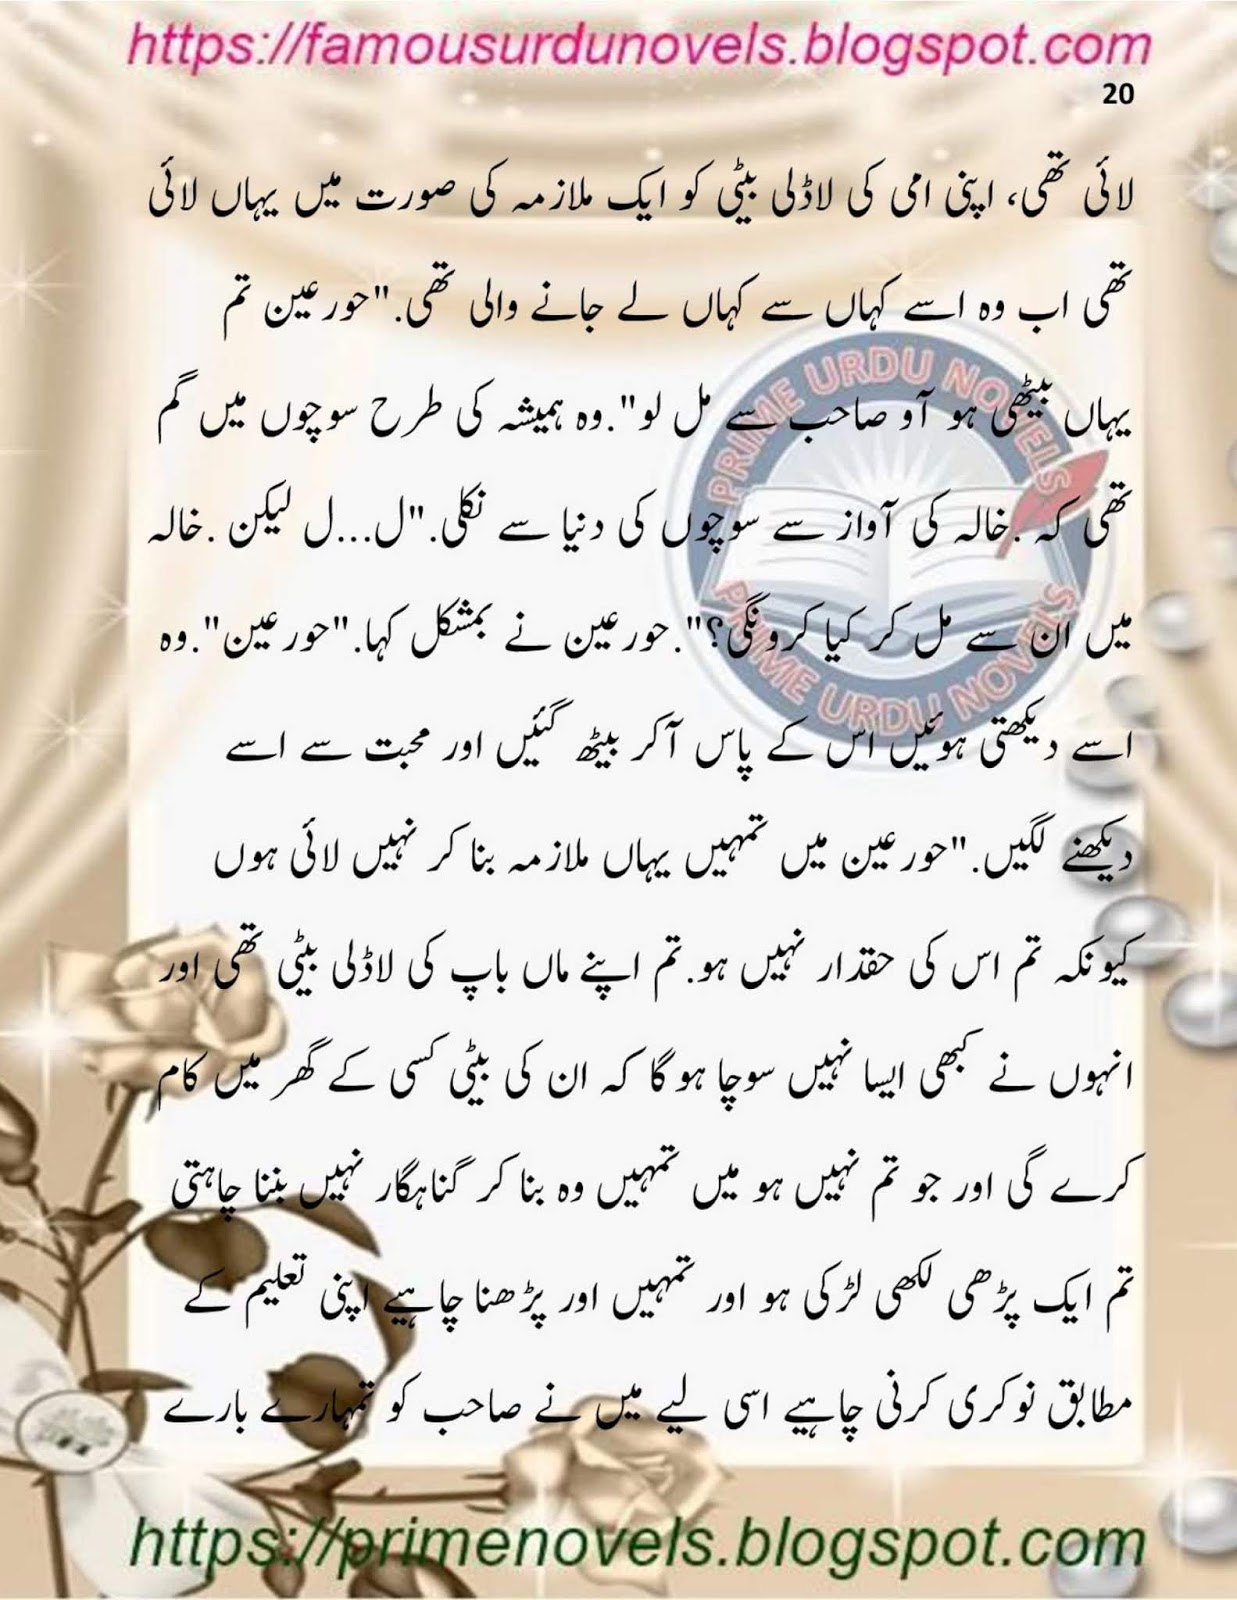 https://famousurdunovels.blogspot.com
20
لائی تھی، اپنی امی کی لاڈلی بیٹی کو ایک ملازمہ کی صورت میں یہاں لائی
تھی اب وہ اسے کہاں سے کہاں لے جانے والی تھی."حورعین تم
یہاں بیٹھی ہو آو صاحب سے مل لو".وہ ہمیشہ کی طرح سوچوں میں گم
تھی کہ .خالہ کی آواز سے سوچوں کی دنیا سے نکلی."ل...ل لیکن .خالہ
میں ان سے مل کر کیا کرونگی؟".حورعین نے بمشکل کہا."حورعین".وہ
اسے دیکھتی ہوئیں اس کے پاس آکر بیٹھ گئیں اور محبت سے اسے
دیکھنے لگیں."حورعین میں تمہیں یہاں ملازمہ بنا کر نہیں لائی ہوں
کیونکہ تم اس کی حقدار نہیں ہو.تم اپنے ماں باپ کی لاڈلی بیٹی تھی اور
انہوں نے کبھی ایسا نہیں سوچا ہوگا کہ ان کی بیٹی کسی کے گھر میں کام
کرے گی اور جو تم نہیں ہو میں تمہیں وہ بنا کر گناہگار نہیں بننا چاہتی
تم ایک پڑھی لکھی لڑکی ہو اور تمہیں اور پڑھنا چاہیے اپنی تعلیم کے
مطابق نوکری کرنی چاہیے اسی لیے میں نے صاحب کو تمہارے بارے
PRIME URDU NOVELS
PRIME URDU NOVELS
https://primenovels.blogspot.com